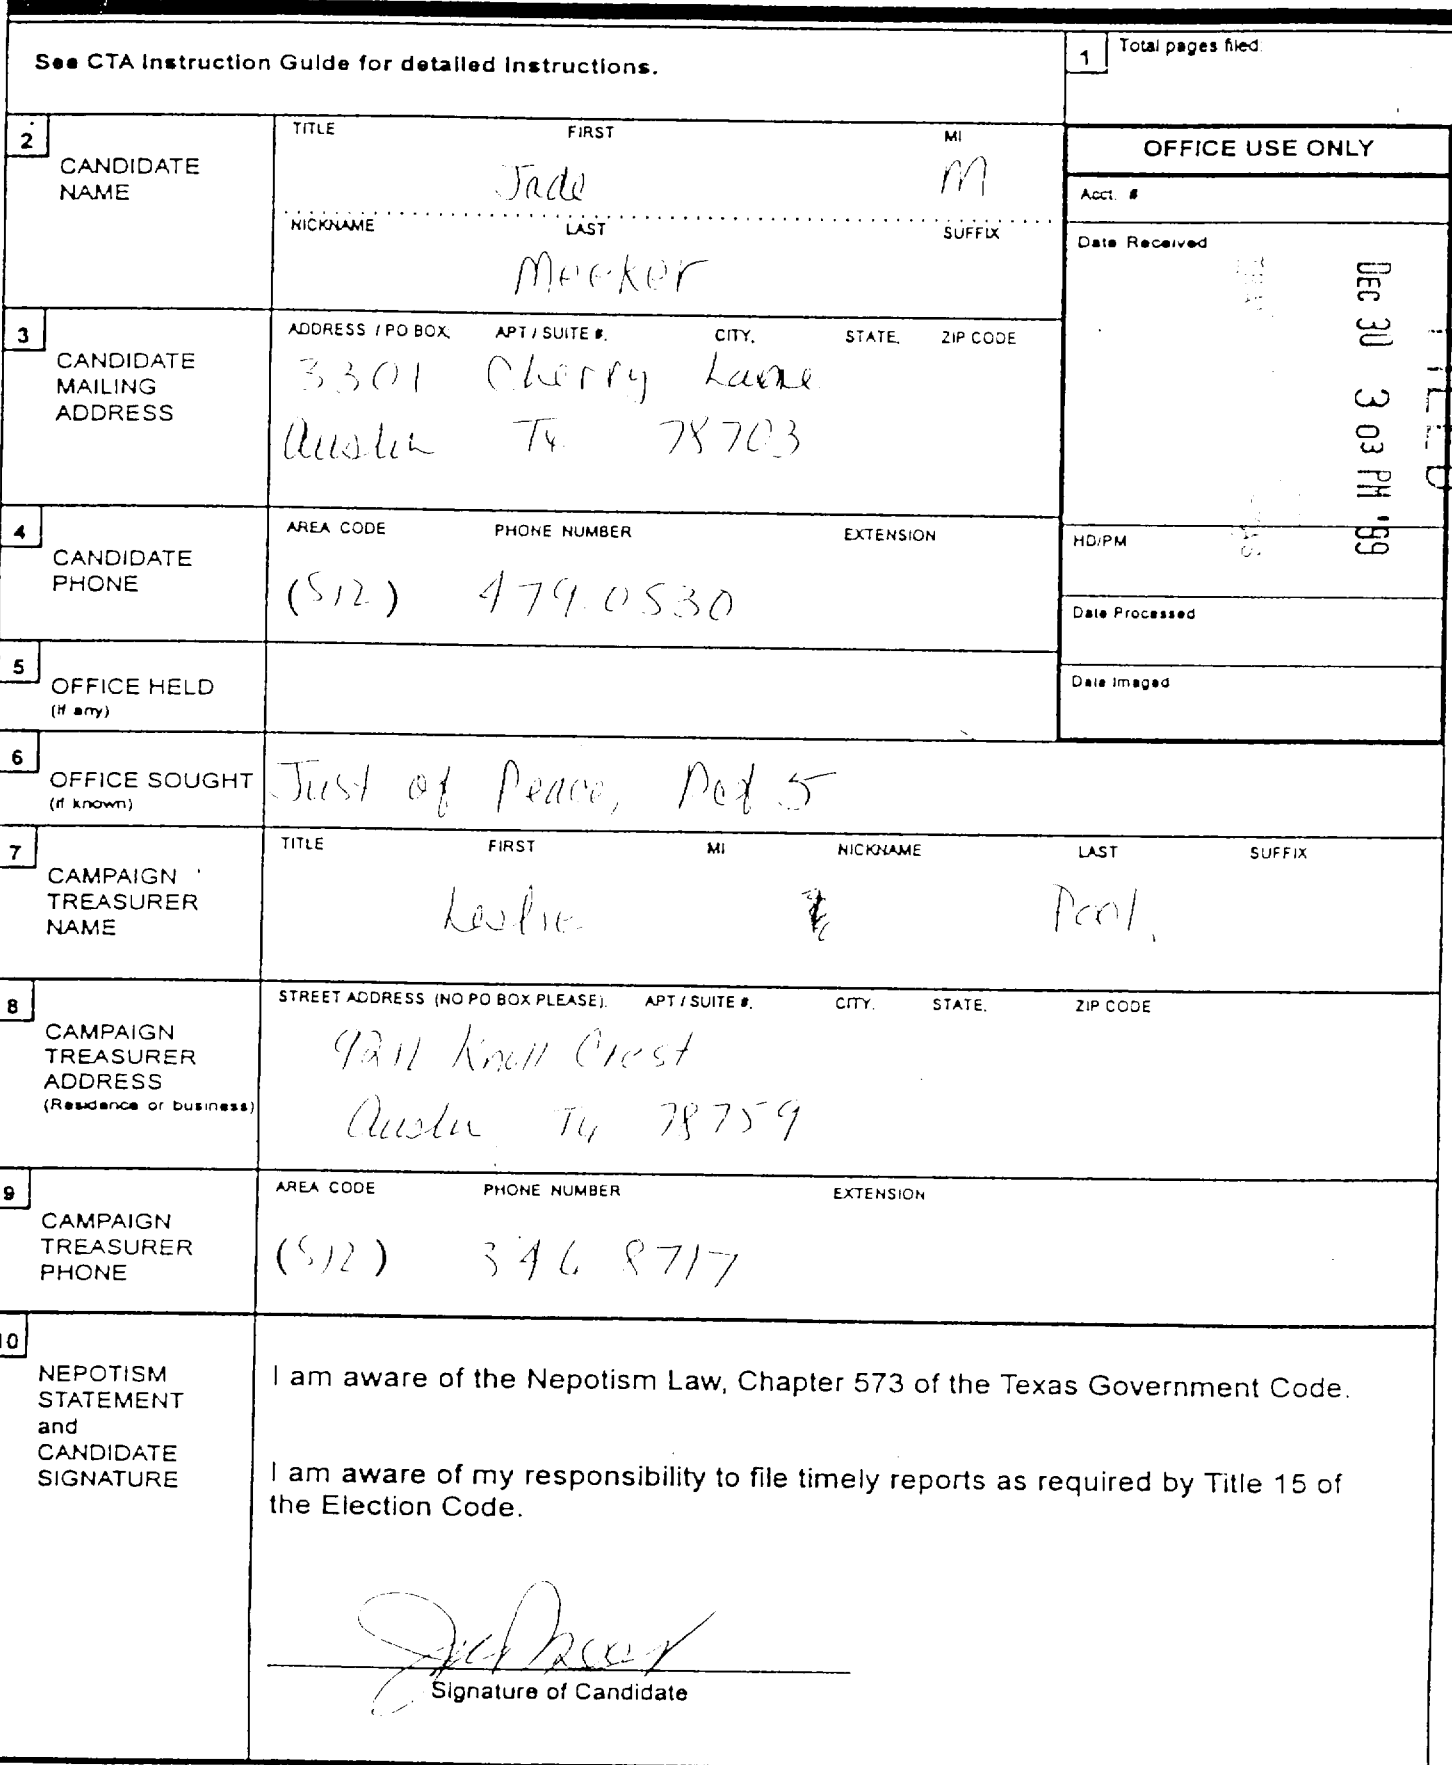 See CTA Instruction Guide for detailed instructions.
1 Total pages filed:
2 CANDIDATE NAME
TITLE FIRST MI
Jade M
NICKNAME LAST SUFFIX
Meeker
OFFICE USE ONLY
Acct. #
Date Received
FILED
DEC 30 3 03 PM '99
HD/PM
Date Processed
Date Imaged
3 CANDIDATE MAILING ADDRESS
ADDRESS / PO BOX; APT / SUITE #; CITY; STATE; ZIP CODE
3301 Cherry Lane
Austin Tx 78703
4 CANDIDATE PHONE
AREA CODE PHONE NUMBER EXTENSION
(512) 479.0530
5 OFFICE HELD
(if any)
6 OFFICE SOUGHT
(if known)
Just of Peace, Pct 5
7 CAMPAIGN TREASURER NAME
TITLE FIRST MI NICKNAME LAST SUFFIX
Leslie
8 CAMPAIGN TREASURER ADDRESS
(Residence or business)
STREET ADDRESS (NO PO BOX PLEASE); APT / SUITE #; CITY; STATE; ZIP CODE
9211 Knoll Crest
Austin Tx 78759
9 CAMPAIGN TREASURER PHONE
AREA CODE PHONE NUMBER EXTENSION
(512) 346 8717
10 NEPOTISM STATEMENT and CANDIDATE SIGNATURE
I am aware of the Nepotism Law, Chapter 573 of the Texas Government Code.
I am aware of my responsibility to file timely reports as required by Title 15 of
the Election Code.
Signature of Candidate